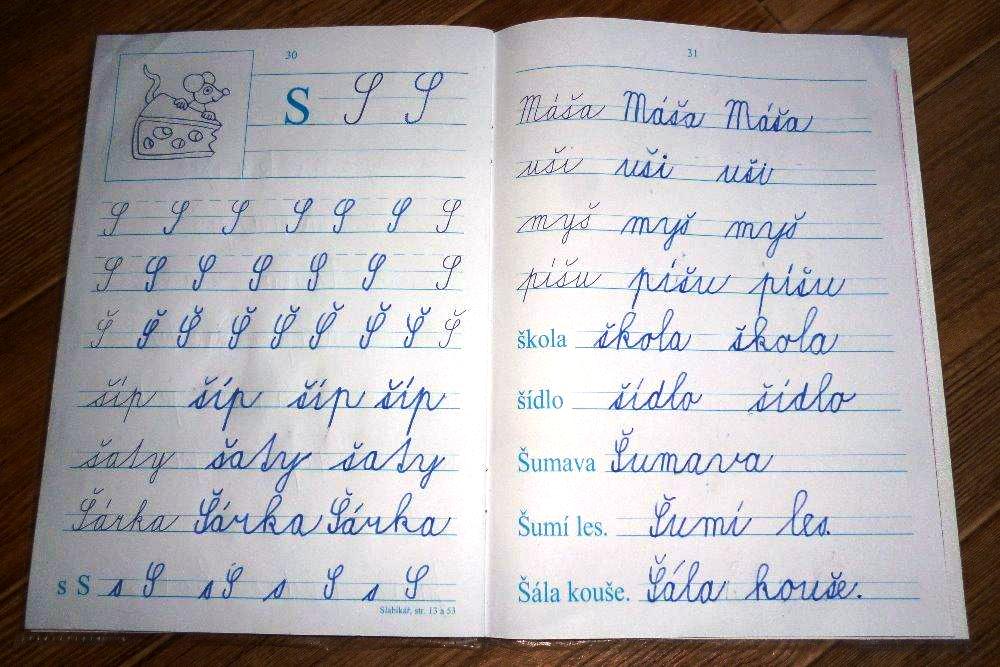 30
S S S
S S S S S S S
S S S S S S S
Š Š Š Š Š Š Š Š Š
šíp šíp šíp šíp
šaty šaty šaty
Šárka Šárka Šárka
s S s S s S s S s S
Slabikář, str. 13 a 53
31
Máša Máša Máša
uši uši uši
myš myš myš
píšu píšu píšu
škola škola škola
šídlo šídlo šídlo
Šumava Šumava
Šumí les. Šumí les.
Šála kouše. Šála kouše.